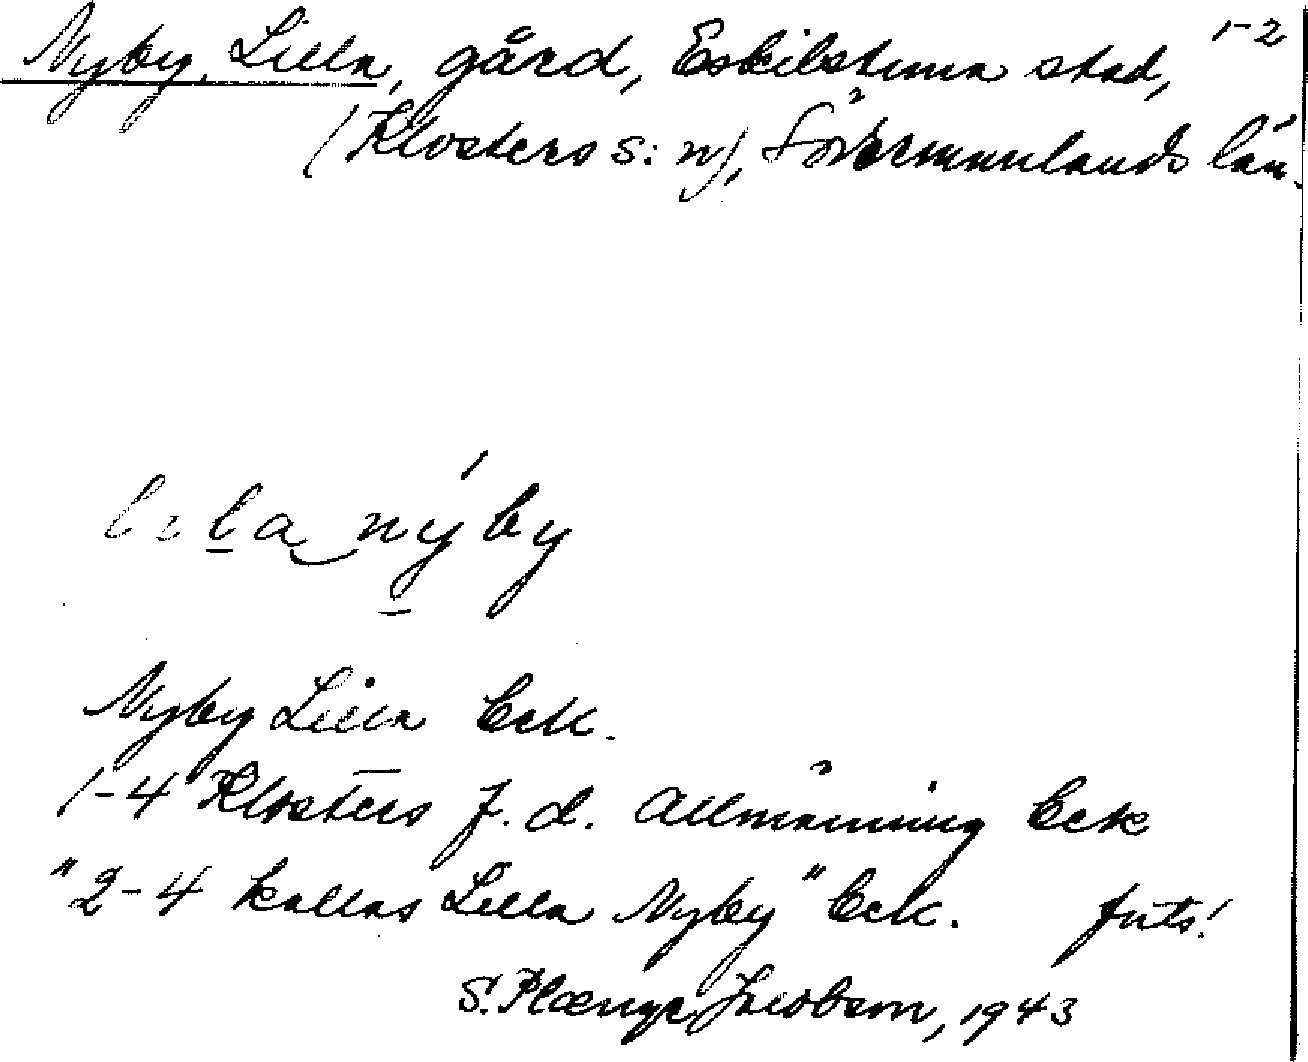 Nyby, Lilla, gård, Eskilstuna stad, 1-2
(Klosters s:n), Södermanlands län.
lila nýby
Nyby Lilla Eck.
1-4 Klosters f.d. allmänning Eck
"2-4 kallas Lilla Nyby" Eck. forts!
S. Jacobson, 1943